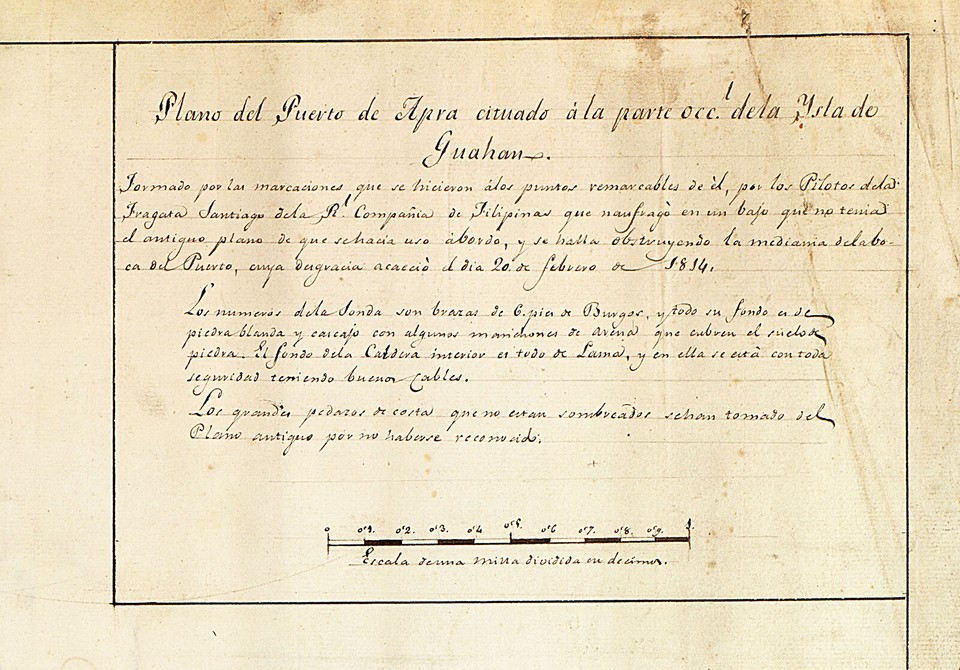 Plano del Puerto de Apra cituado á la parte occ.l de la Ysla de
Guahan.
Formado por las marcaciones que se hicieron á los puntos remarcables de él, por los Pilotos de la
Fragata Santiago de la R.l Compañia de Filipinas que naufragó en un bajo que no tenia
el antiguo plano de que se hacia uso abordo, y se halla obstruyendo la mediania de la bo-
ca del Puerto, cuya desgracia acaeció el dia 20 de febrero de 1814.
Los numeros de la sonda son brazas de 6. pies de Burgos, y todo su fondo es de
piedra blanda y cascajo con algunos manchones de arena que cubren el suelo de
piedra. El fondo de la Caldera interior es todo de Lama, y en ella se está con toda
seguridad teniendo buenos Cables.
Los grandes pedazos de costa que no estan sombreados se han tomado del
Plano antiguo por no haberse reconocido.
0 0'1. 0'2. 0'3. 0'4 0'5. 0'6 0'7. 0'8. 0'9. 1.
Escala de una milla dividida en decimos.